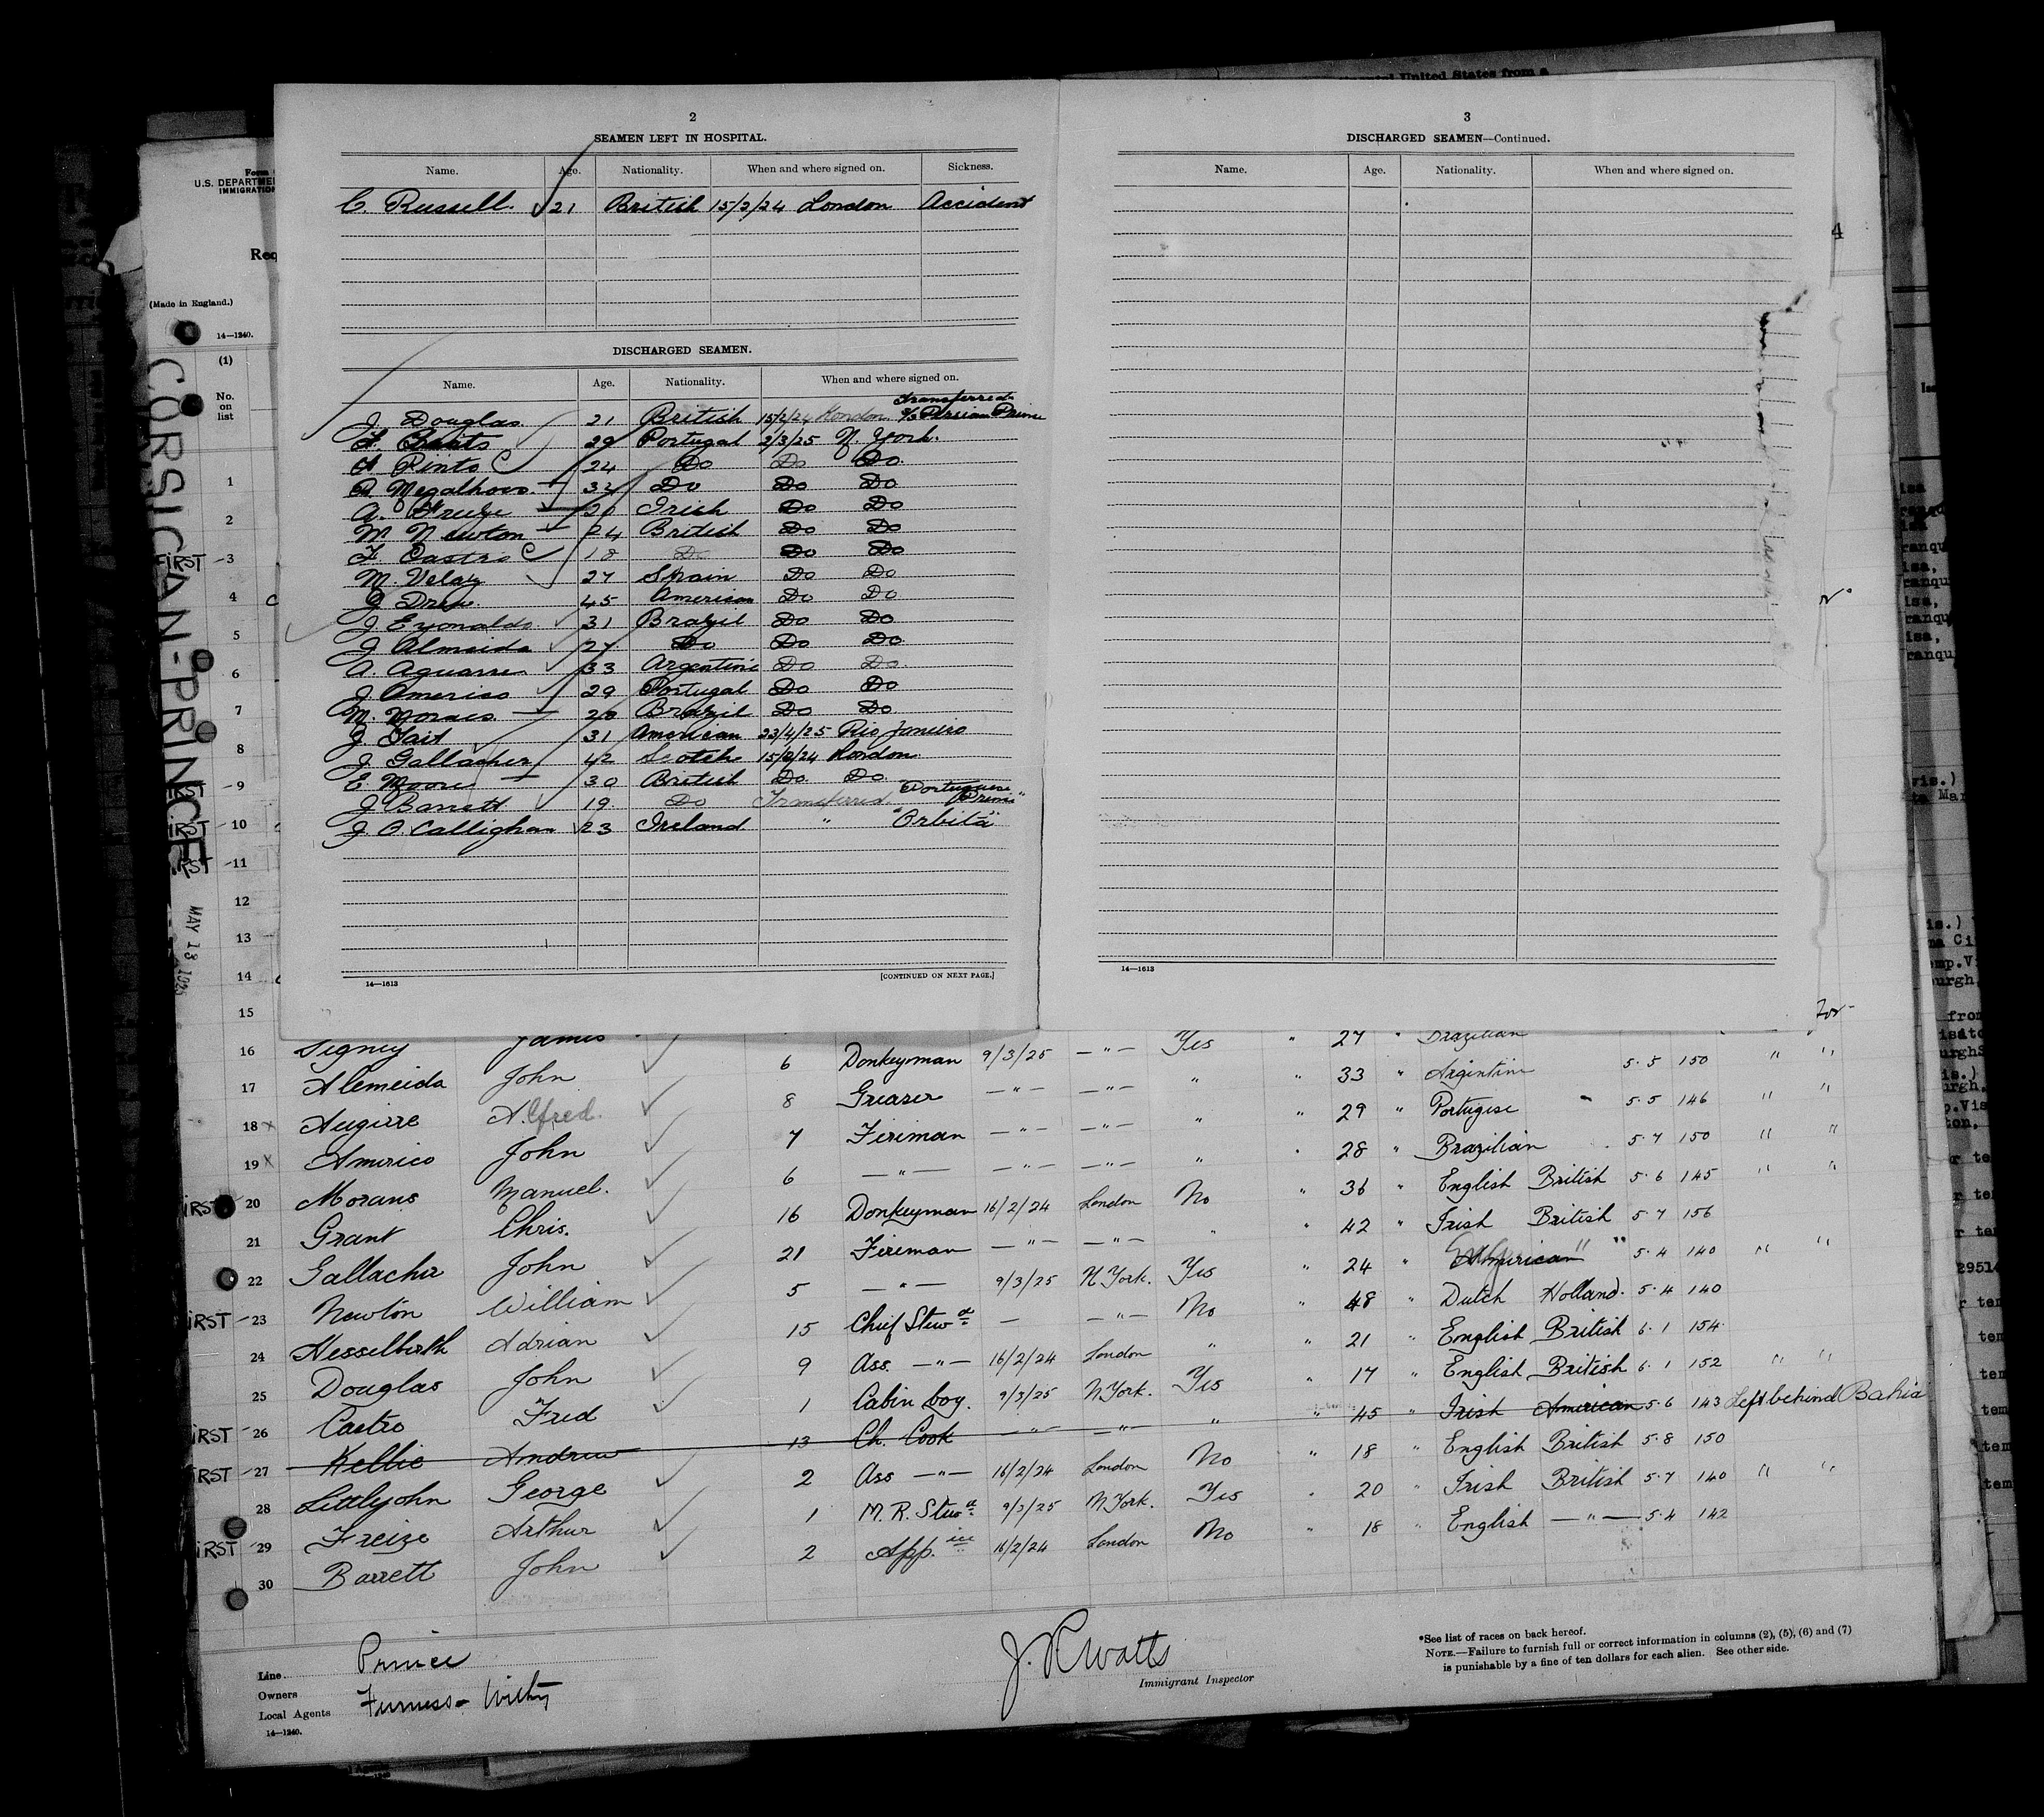 2
SEAMEN LEFT IN HOSPITAL.
Name. Age. Nationality. When and where signed on. Sickness.
C. Russell. 21 British 15/2/24 London Accident
DISCHARGED SEAMEN.
Name. Age. Nationality. When and where signed on.
Transferred
J. Douglas 21 British 15/2/24 London Persian Prince
29 Portugal 2/3/25 N. York.
A Pinto 24 Do Do Do
32 Do Do Do
A. 20 Irish Do Do
M Newton 24 British Do Do
F Castro 18 Do Do Do
M. Velay 27 Spain Do Do
J Drew 45 American Do Do
J Evonaldo 31 Brazil Do Do
J Almeida 27 Do Do Do
A. Aguarre 33 Argentine Do Do
J Ameriso 29 Portugal Do Do
M. Moraes 28 Brazil Do Do
J. Tait 31 American 23/4/25 Rio Janeiro
J. Gallacher 42 Scotch 15/2/24 London
E Moore 30 British Do Do
J Barrett 19 Do Transferred Portuguese Prince"
J. O. Callighan 23 Ireland " "Orbita"
14—1613
[CONTINUED ON NEXT PAGE.]
3
DISCHARGED SEAMEN—Continued.
Name. Age. Nationality. When and where signed on.
14—1613
4
U.S. DEPARTME
IMMIGRATION
Req
(Made in England.)
14—1240.
(1)
No.
on
list
CORSICAN-PRINCE
MAY 13 1925
1
2
FIRST 3
4
5
6
7
8
9
10
11
12
13
14
15
16 Signey James 6 Donkeyman 9/3/25 — " — Yes " 27 " Brazilian
17 Alemeida John 8 Greaser — " — — " — " " 33 " Argentine 5.5 150 " "
18 x Augirre Alfred. 7 Fireman — " — — " — " " 29 " Portugise 5.5 146 " "
19 x Amirico John 6 — " — — " — — " — " " 28 " Brazilian 5.7 150 " "
20 Morans Manuel. 16 Donkeyman 16/2/24 London No " 36 " English British 5.6 145 " "
21 Grant Chris. 21 Fireman — " — — " — " " 42 " Irish British 5.7 156
22 Gallacher John 5 — " — 9/3/25 N York. Yes " 24 " American " " 5.4 140 " "
FIRST 23 Newton William 15 Chief Stewd — — " — No " 48 " Dutch Holland. 5.4 140
24 Hesselberth Adrian 9 Ass. — " — 16/2/24 London " " 21 " English British 6.1 154
25 Douglas John 1 Cabin boy. 9/3/25 N York. Yes " 17 " English British 6.1 152 " "
FIRST 26 Castro Fred 13 Ch. Cook — " — — " — " " 45 " Irish American 5.6 143 Left behind Bahia
27 Kellie Andrew 2 Ass — " — 16/2/24 London No " 18 " English British 5.8 150
28 Littlejohn George 1 M. R. Stewd 9/3/25 N York. Yes " 20 " Irish British 5.7 140 " "
FIRST 29 Freize Arthur 2 App.ice 16/2/24 London No " 18 " English — " — 5.4 142
30 Barrett John
Line Prince
Owners
Local Agents Furness-Withy
14—1240.
J. R Watts
Immigrant Inspector
*See list of races on back hereof.
NOTE.—Failure to furnish full or correct information in columns (2), (5), (6) and (7)
is punishable by a fine of ten dollars for each alien. See other side.